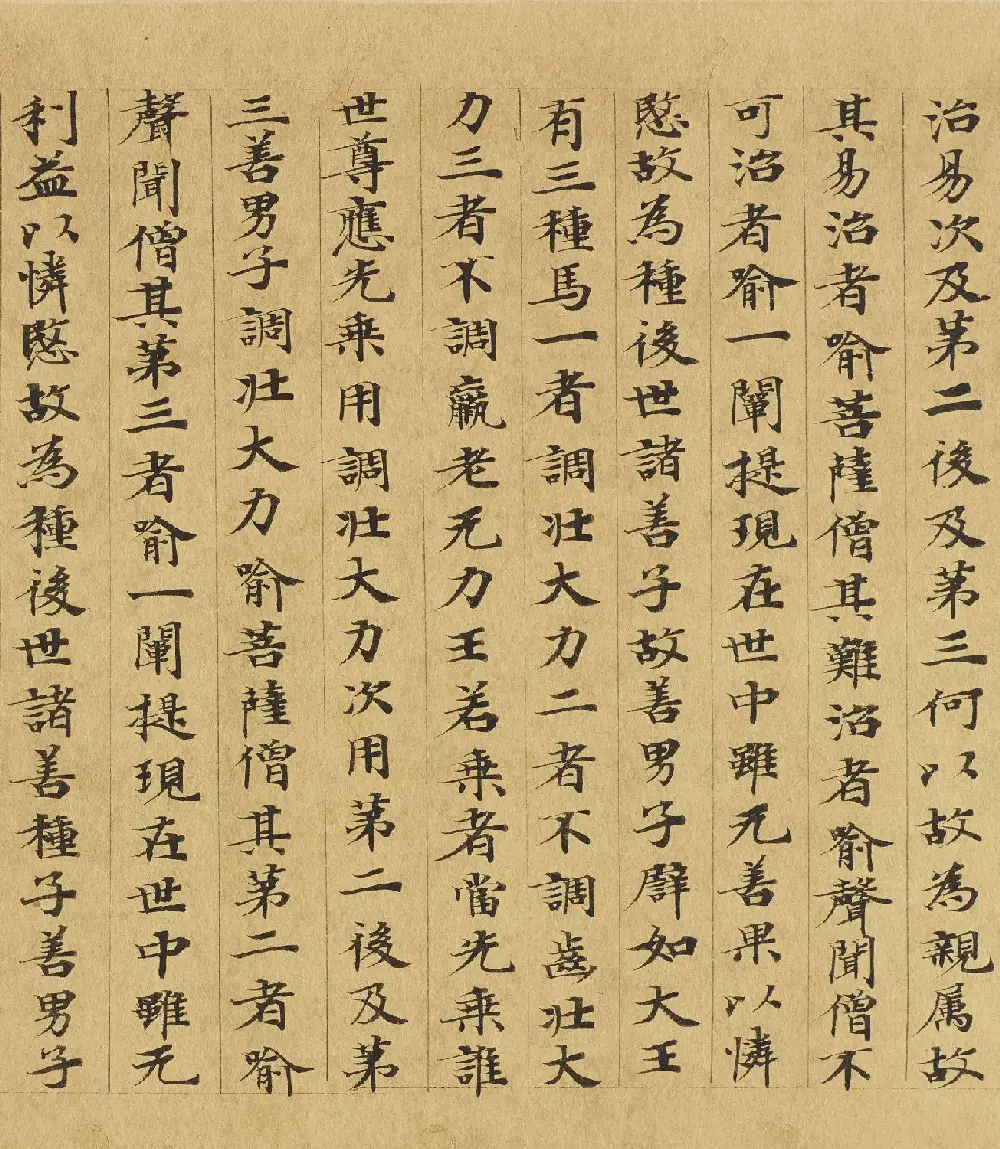 治易次及第二後及第三何以故為親属故
其易治者喻菩薩僧其難治者喻聲聞僧不
可治者喻一闡提現在世中雖无善果以憐
愍故為種後世諸善子故善男子譬如大王
有三種馬一者調壯大力二者不調齒壯大
力三者不調羸老无力王若乗者當先乗誰
世尊應先乗用調壯大力次用第二後及第
三善男子調壯大力喻菩薩僧其第二者喻
聲聞僧其第三者喻一闡提現在世中雖无
利益以憐愍故為種後世諸善種子善男子